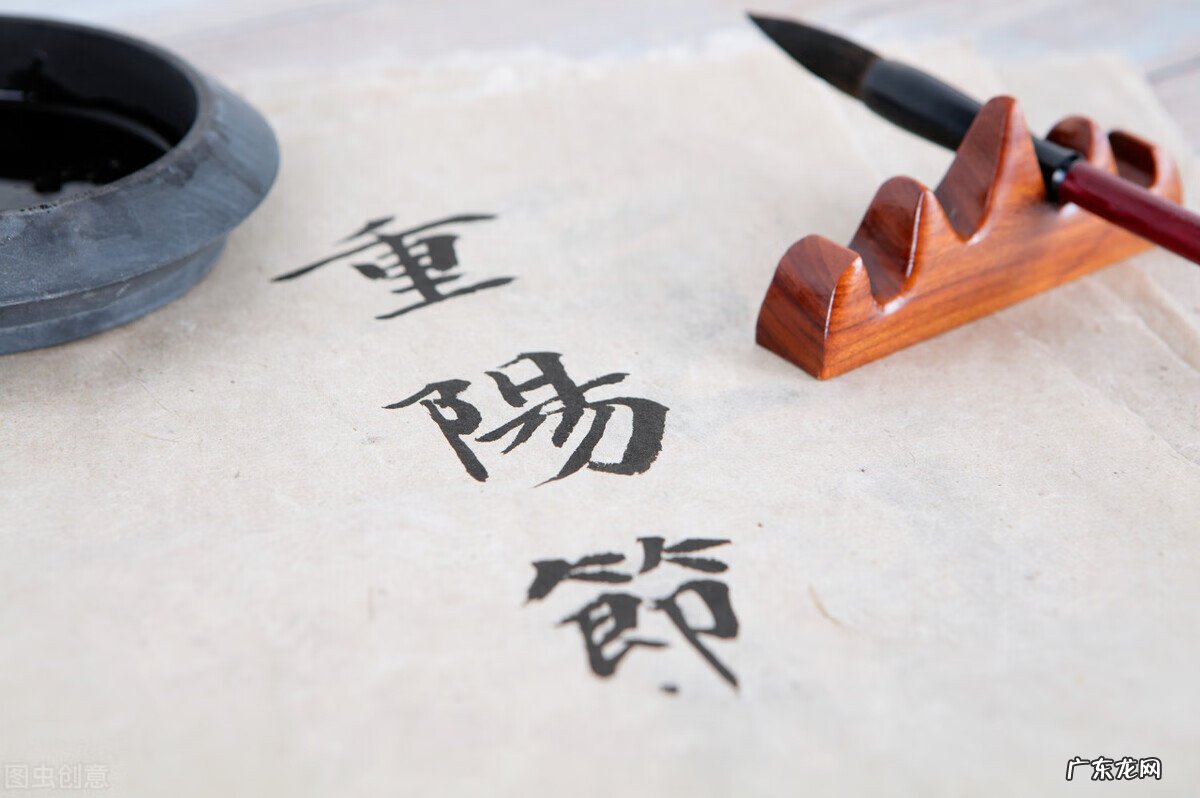 重陽節
图虫创意
广东龙网